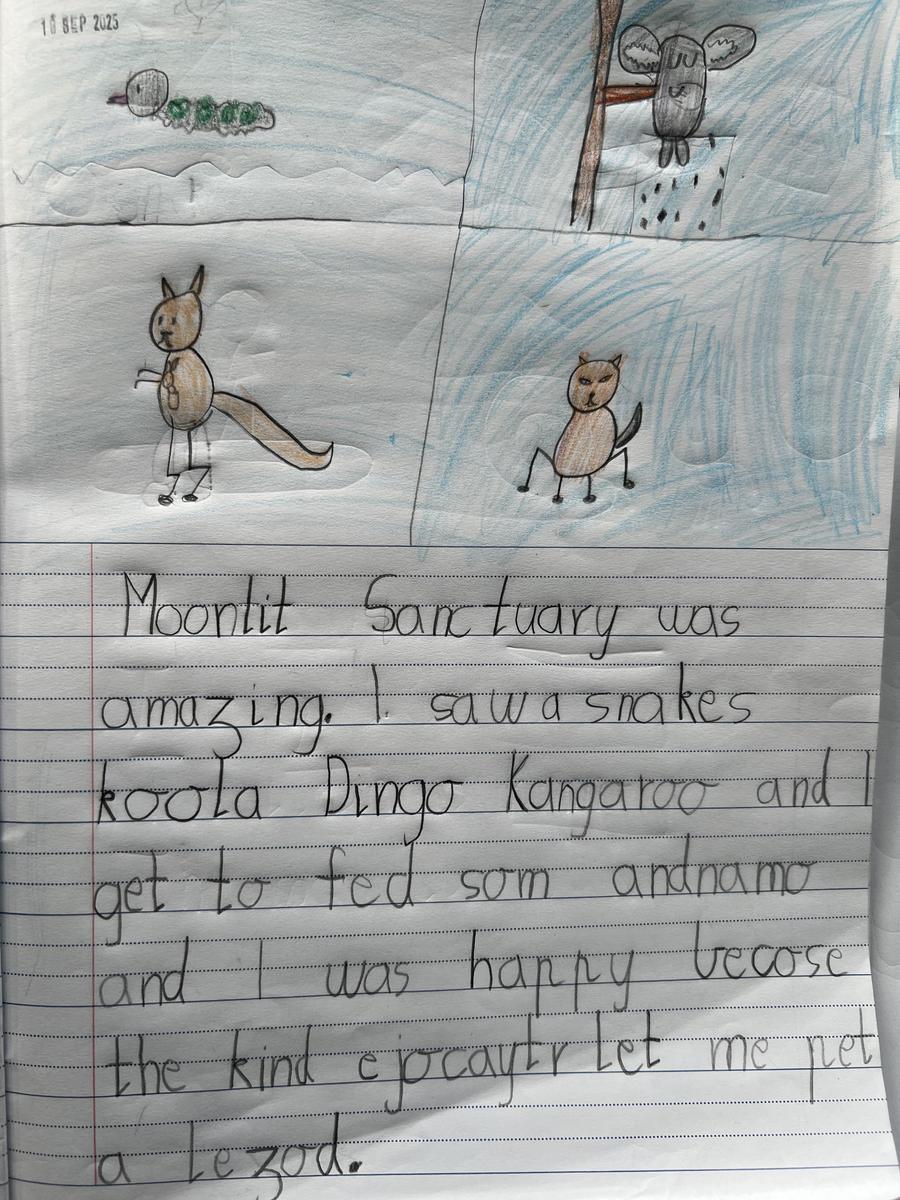 16 SEP 2025
Moontit Sanctuary was
amazing. I saw a snakes
koola Dingo Kangaroo and I
get to fed som andnamo
and I was happy becose
the kind ejocaytr let me pet
a Lezod.